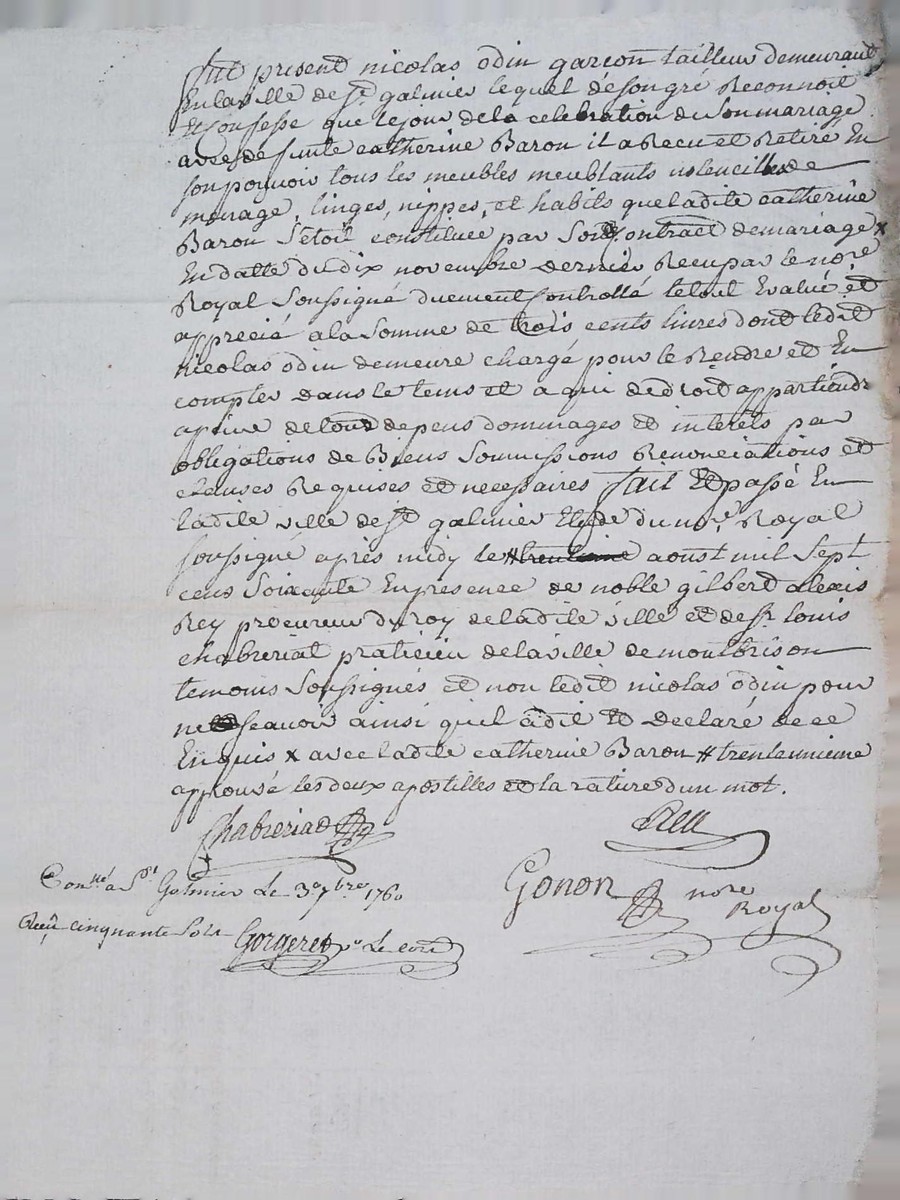 fut present nicolas odin garçon tailleur demeurant
En la ville de st. galmier lequel de son gré Reconnoit
Et Confesse que le jour de la celebration du Son mariage
avec defunte catherine Baron il a Recu et Retiré En
son pouvoir tous les meubles meublants ustencilles de
menage, linges, nippes, et habits que ladite catherine
Baron S'étoit constituée par Son Contract de mariage x
En datte du dix novembre dernier Recu par le nore
Royal Soussigné duement Controllé le tout Evalué et
apprecié a la Somme de trois cents livres dont ledit
nicolas odin demeure chargé pour le Rendre et En
compter dans le tems et a qui de droit appartiendr
a peine de tous depens dommages et interets par
obligations de Biens Soumissions Renonciations et
clauses Requises et necessaires fait Et passé En
ladite ville de st galmier Etude du nre. Royal
soussigné après midy le # aoust mil Sept
cens Soixante En presence de noble gilbert alexis
Rey procureur du roy de ladite ville et de sr. louis
chabreriat praticien de la ville de montbrison
temoins Soussignés et non ledit nicolas odin pour
ne sçauoir ainsi qu'il a dit Et Declaré de ce
Enquis x avec ladite catherine Baron # trente unieme
approuvé les deux apostilles et la rature d'un mot.
Chabreriat Rey
Conllé a St Galmier Le 3e 7bre 1760 Gonon nore
Royal
Reçu cinquante sols Gorgeret